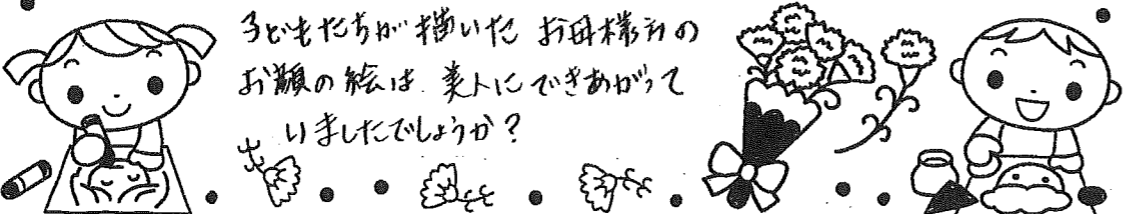 子どもたちが描いた お母様方の
お顔の絵は、美人にできあがって
いましたでしょうか?